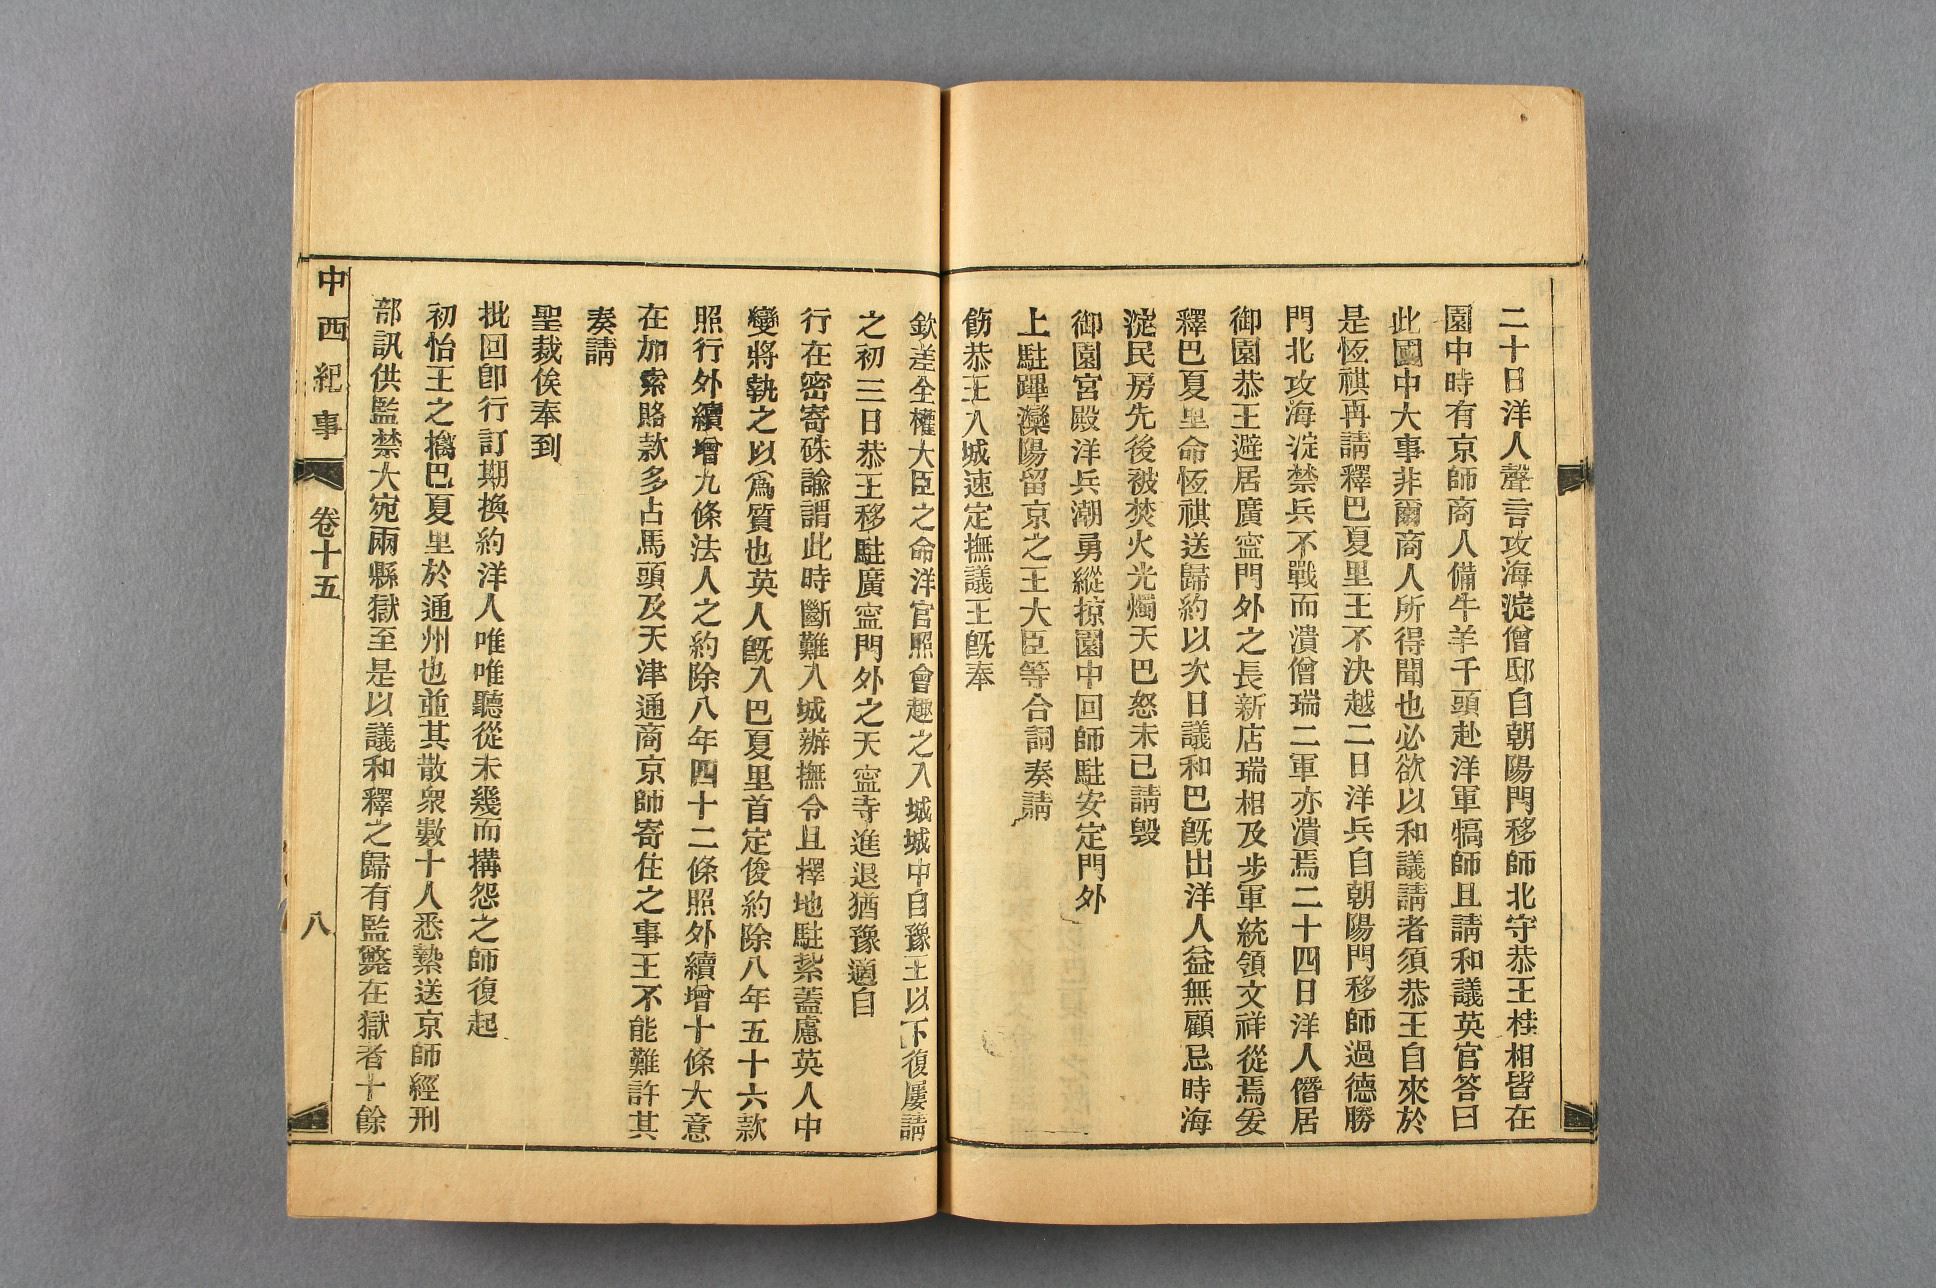 二十日洋人聲言攻海淀僧邸自朝陽門移師北守恭王桂相皆在
園中時有京師商人備牛羊千頭赴洋軍犒師且請和議英官答曰
此國中大事非爾商人所得聞也必欲以和議請者須恭王自來於
是恆祺再請釋巴夏里王不決越二日洋兵自朝陽門移師過德勝
門北攻海淀禁兵不戰而潰僧瑞二軍亦潰焉二十四日洋人僭居
御園恭王避居廣寍門外之長新店瑞相及步軍統領文祥從焉爰
釋巴夏里命恆祺送歸約以次日議和巴旣出洋人益無顧忌時海
淀民房先後被焚火光燭天巴怒未已請毀
御園宮殿洋兵潮勇縱掠園中回師駐安定門外
上駐蹕灤陽留京之王大臣等合詞奏請
飭恭王入城速定撫議王旣奉
欽差全權大臣之命洋官照會趣之入城城中自豫王以下復屢請
之初三日恭王移駐廣寍門外之天寍寺進退猶豫適自
行在密寄硃諭謂此時斷難入城辦撫令且擇地駐紮蓋慮英人中
變將執之以爲質也英人旣入巴夏里首定俊約除八年五十六款
照行外續增九條法人之約除八年四十二條照外續增十條大意
在加索賂款多占馬頭及天津通商京師寄住之事王不能難許其
奏請
聖裁俟奉到
批回卽行訂期換約洋人唯唯聽從未幾而搆怨之師復起
初怡王之擒巴夏里於通州也並其散衆數十人悉縶送京師經刑
部訊供監禁大宛兩縣獄至是以議和釋之歸有監斃在獄者十餘
中西紀事 卷十五 八